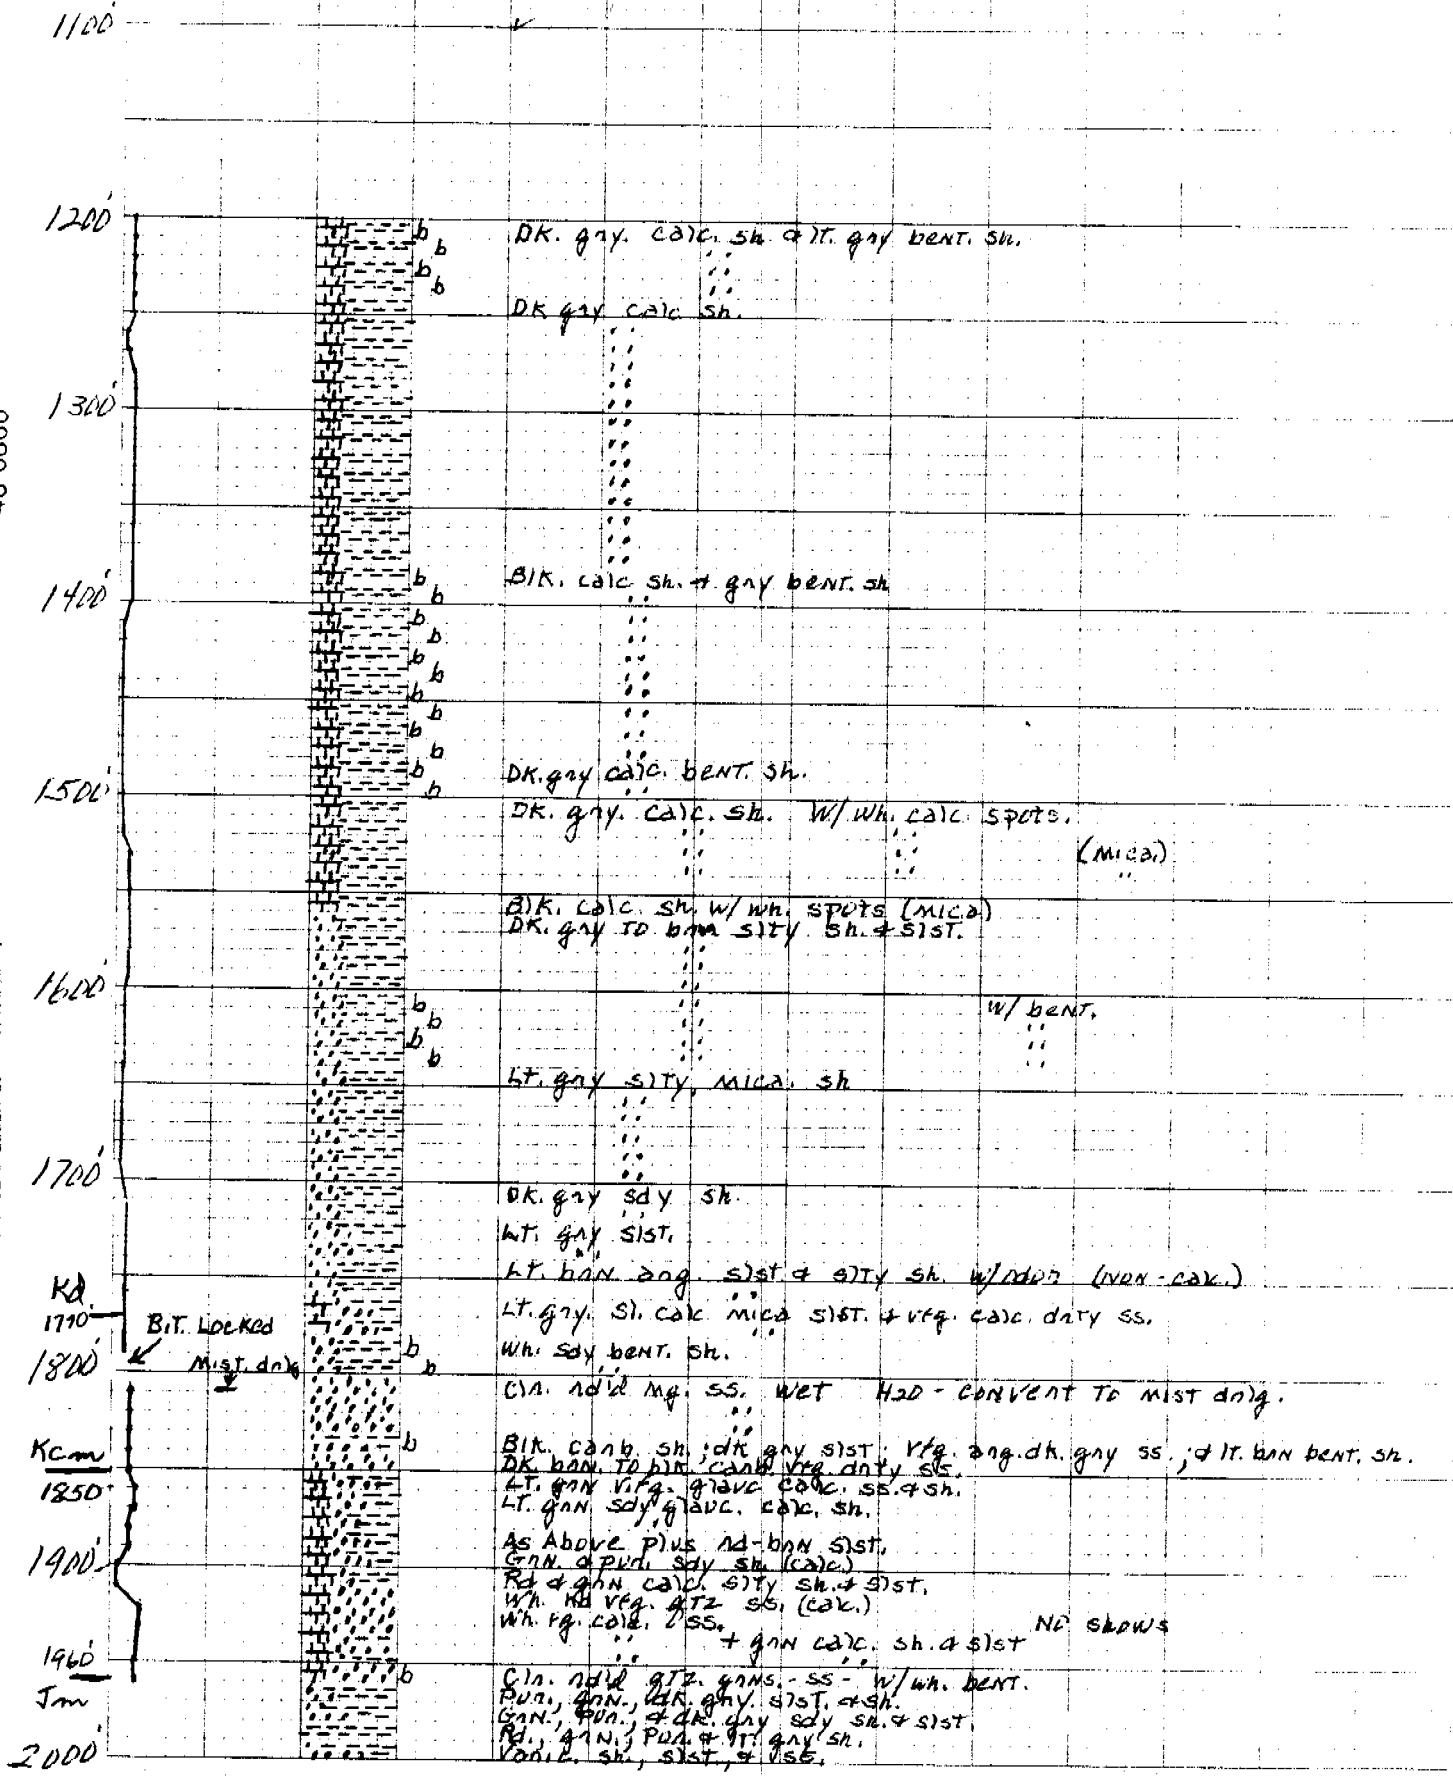 1100'
1200'
DK. gry. calc. sh & lt. gry bent. sh.
DK gry calc sh.
1300'
Blk. calc sh. & gry bent. sh
1400'
DK. gry calc. bent. sh.
1500'
DK. gry. calc. sh. w/ wh. calc spots.
(mica)
Blk. calc. sh. w/ wh. spots (mica)
DK. gry to brn slty sh. & slst.
1600'
w/ bent.
Lt. gry slty, mica. sh
1700'
DK. gry sdy sh.
Lt. gry slst.
Lt. brn. ang. slst & slty sh. w/ (non-calc.)
Kd
1770'
Lt. gry. sl. calc mica slst. & vfg. calc. drty ss.
Bit Locked
Wh. sdy bent. sh.
1800'
Mist. drlg
Cln. rd'd mg. ss. wet H2O - convert to mist drlg.
Kcm
1850'
Blk. carb. sh.; dk gry slst; vfg. ang. dk. gry ss.; & lt. brn bent. sh.
DK. brn. to blk carb. vfg. drty ss.
Lt. grn v.fg. glauc calc. ss. & sh.
Lt. grn sdy glauc. calc. sh.
As Above plus rd-brn slst.
1900'
Grn. & pur. sdy sh. (calc)
Rd & grn calc. slty sh. & slst.
Wh. vfg. qtz ss. (calc.)
Wh. fg. calc. ss.
No shows
+ grn calc. sh. & slst
1960'
Jm
Cln. rd'd qtz. grns. - ss - w/ wh. bent.
Pur., grn., dk. gry. slst. & sh.
Grn., pur., & dk. gry sdy sh. & slst.
Rd., grn., pur. & lt. gry sh.
Vari.c. sh., slst., & ss.
2000'